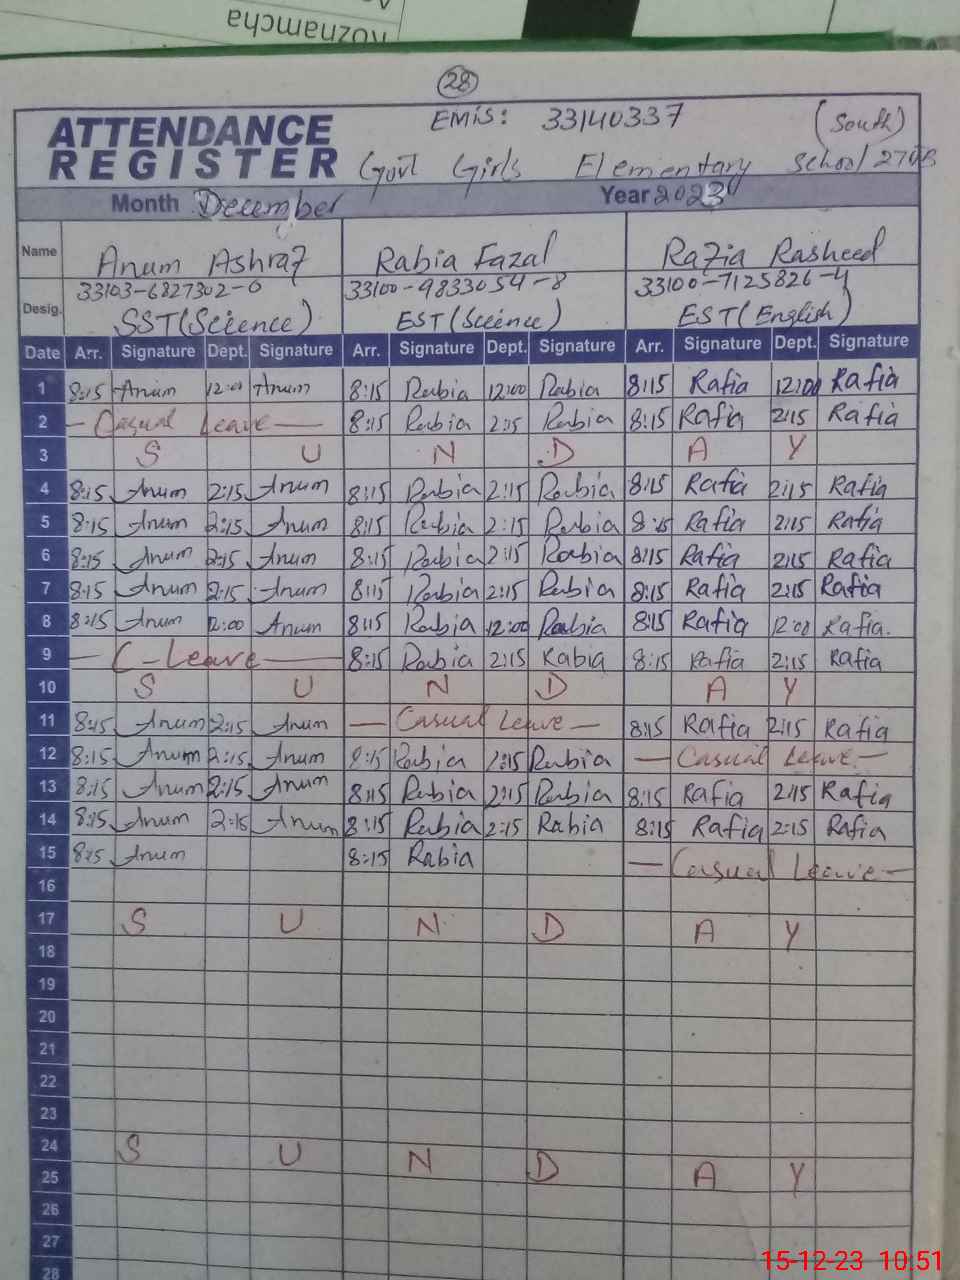 Roznamcha
28
ATTENDANCE REGISTER
EMIS: 33140337 (South)
Govt Girls Elementary School 270
Month December Year 2023
Name Anum Ashraf Rabia Fazal Rafia Rasheed
33103-6827302-0 33100-9833054-8 33100-7125826-4
Desig. SST(Science) EST(Science) EST(English)
Date Arr. Signature Dept. Signature Arr. Signature Dept. Signature Arr. Signature Dept. Signature
1 8:15 Anum 12:00 Anum 8:15 Rabia 12:00 Rabia 8:15 Rafia 12:00 Rafia
2 - Casual Leave - 8:15 Rabia 2:15 Rabia 8:15 Rafia 2:15 Rafia
3 S U N D A Y
4 8:15 Anum 2:15 Anum 8:15 Rabia 2:15 Rabia 8:15 Rafia 2:15 Rafia
5 8:15 Anum 2:15 Anum 8:15 Rabia 2:15 Rabia 8:15 Rafia 2:15 Rafia
6 8:15 Anum 2:15 Anum 8:15 Rabia 2:15 Rabia 8:15 Rafia 2:15 Rafia
7 8:15 Anum 2:15 Anum 8:15 Rabia 2:15 Rabia 8:15 Rafia 2:15 Rafia
8 8:15 Anum 12:00 Anum 8:15 Rabia 12:00 Rabia 8:15 Rafia 12:00 Rafia.
9 - C-Leave - 8:15 Rabia 2:15 Rabia 8:15 Rafia 2:15 Rafia
10 S U N D A Y
11 8:15 Anum 2:15 Anum - Casual Leave - 8:15 Rafia 2:15 Rafia
12 8:15 Anum 2:15 Anum 8:15 Rabia 2:15 Rabia - Casual Leave -
13 8:15 Anum 2:15 Anum 8:15 Rabia 2:15 Rabia 8:15 Rafia 2:15 Rafia
14 8:15 Anum 2:15 Anum 8:15 Rabia 2:15 Rabia 8:15 Rafia 2:15 Rafia
15 8:15 Anum 8:15 Rabia - Casual Leave -
16
17 S U N D A Y
18
19
20
21
22
23
24 S U N D A Y
25
26
27
28
15-12-23 10:51